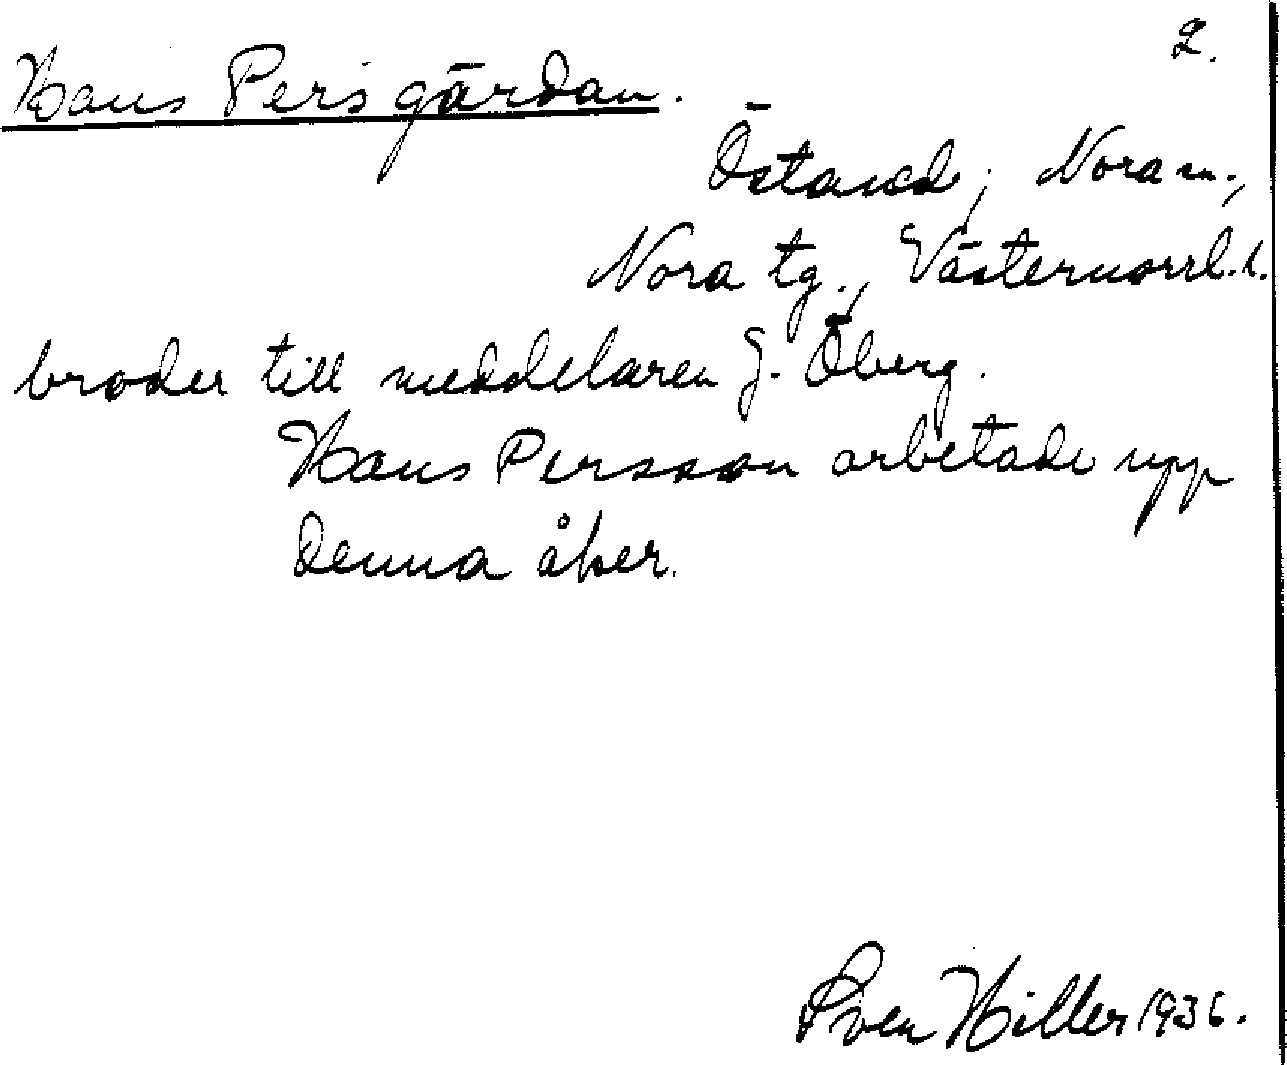 2.
Hans Persgårdan.
Östaned, Nora sn.,
Nora tg., Västernorrl. l.
broder till meddelaren J. Öberg.
Hans Persson arbetade upp
denna åker.
Sven Hiller 1936.